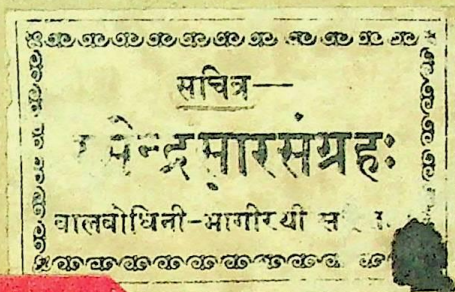 सचित्र—
सेन्द्रसारसंग्रहः
बालबोधिनी-भागीरथी